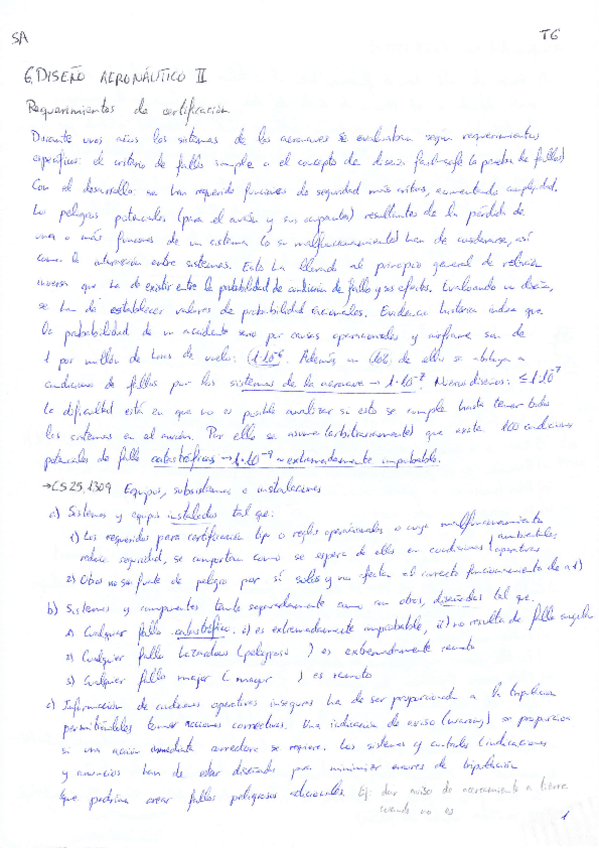 SA T6
6. DISEÑO AERONÁUTICO II
Requerimientos de certificación
Durante unos años los sistemas de las aeronaves se evaluaban según requerimientos
específicos: el criterio de fallo simple o el concepto de diseño fail-safe (a prueba de fallos)
Con el desarrollo se han requerido funciones de seguridad más críticas, aumentando complejidad.
Los peligros potenciales (para el avión y sus ocupantes) resultantes de la pérdida de
una o más funciones de un sistema (o su malfuncionamiento) han de considerarse, así
como la interacción entre sistemas. Esto ha llevado al principio general de relación
inversa que ha de existir entre la probabilidad de condición de fallo y sus efectos. Evaluando un diseño,
se han de establecer valores de probabilidad racionales. Evidencia histórica indica que
la probabilidad de un accidente serio por causas operacionales y airframe son de
1 por millón de horas de vuelo: 1·10⁻⁶. Además un 10% de ellos se atribuyen a
condiciones de fallos por los sistemas de la aeronave → 1·10⁻⁷. Nuevos diseños: ≤ 1·10⁻⁷
La dificultad está en que no es posible analizar si esto se cumple hasta tener todos
los sistemas en el avión. Por ello se asume (arbitrariamente) que existe 100 condiciones
potenciales de fallo catastróficas → 1·10⁻⁹ ≈ extremadamente improbable.
→ CS 25.1309 Equipos, subsistemas e instalaciones
a) Sistemas y equipos instalados tal que:
1) Los requeridos para certificación tipo o reglas operacionales o cuyo malfuncionamiento
reduce seguridad, se comportan como se espera de ellos en condiciones ambientales, operativas
2) Otros no son fuente de peligro por sí solos y no afectan al correcto funcionamiento de a1)
b) Sistemas y componentes tanto separadamente como con otros, diseñados tal que.
1) Cualquier fallo catastrófico i) es extremadamente improbable, ii) no resulta de fallo single
2) Cualquier fallo hazardous (peligroso) es extremadamente remoto
3) Cualquier fallo major (mayor) es remoto
c) Información de condiciones operativas inseguras ha de ser proporcionada a la tripulación
permitiéndoles tomar acciones correctivas. Una indicación de aviso (warning) se proporciona
si una acción inmediata correctora se requiere. Los sistemas y controles (indicaciones
y anuncios) han de estar diseñados para minimizar errores de tripulación
que podrían crear fallos peligrosos adicionales. Ej: dar aviso de acercamiento a tierra
cuando no es
1